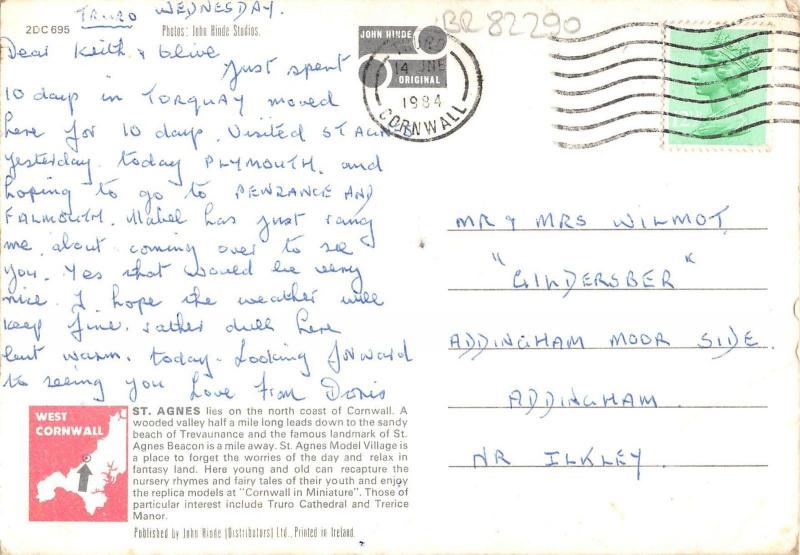 TRURO WEDNESDAY.
2DC695
Photos: John Hinde Studios.
Dear Keith & Olive
Just spent
10 days in TORQUAY moved
here for 10 days. Visited ST AGNES
yesterday. today PLYMOUTH. and
hoping to go to PENZANCE AND
FALMOUTH. Mabel has just rang
me about coming over to see
you. Yes that would be very
nice. I hope the weather will
keep fine. rather dull here
but warm. today. Looking forward
to seeing you Love from Doris
WEST
CORNWALL
ST. AGNES lies on the north coast of Cornwall. A
wooded valley half a mile long leads down to the sandy
beach of Trevaunance and the famous landmark of St.
Agnes Beacon is a mile away. St. Agnes Model Village is
a place to forget the worries of the day and relax in
fantasy land. Here young and old can recapture the
nursery rhymes and fairy tales of their youth and enjoy
the replica models at "Cornwall in Miniature". Those of
particular interest include Truro Cathedral and Trerice
Manor.
Published by John Hinde (Distributors) Ltd., Printed in Ireland.
BR 82290
JOHN HINDE
ORIGINAL
14 JNE
1984
CORNWALL
MR & MRS WILMOT,
"GILDERSBER"
ADDINGHAM MOOR SIDE.
ADDINGHAM.
NR ILKLEY.